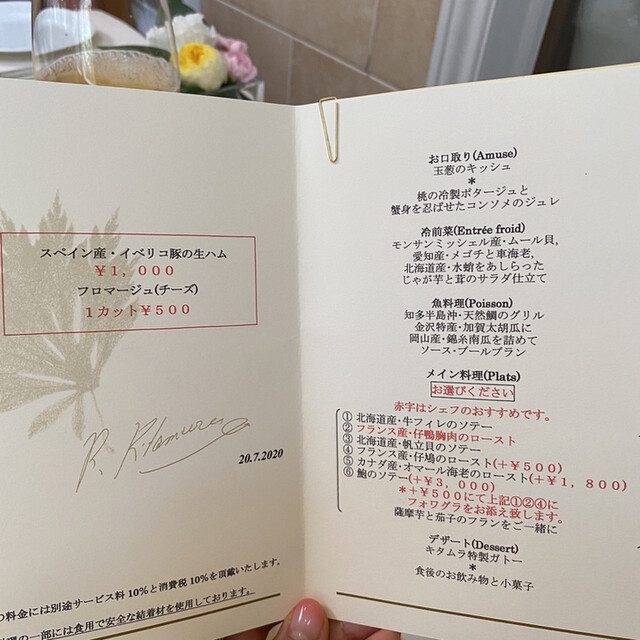 スペイン産・イベリコ豚の生ハム
￥１，０００
フロマージュ(チーズ)
１カット￥５００
R. Kitamura
20.7.2020
の料金には別途サービス料10%と消費税10%を頂戴いたします。
理の一部には食用で安全な結着材を使用しております。
お口取り(Amuse)
玉葱のキッシュ
*
桃の冷製ポタージュと
蟹身を忍ばせたコンソメのジュレ
冷前菜(Entrée froid)
モンサンミッシェル産・ムール貝,
愛知産・メゴチと車海老,
北海道産・水蛸をあしらった
じゃが芋と茸のサラダ仕立て
魚料理(Poisson)
知多半島沖・天然鯛のグリル
金沢特産・加賀太胡瓜に
岡山産・錦糸南瓜を詰めて
ソース・ブールブラン
メイン料理(Plats)
お選びください
赤字はシェフのおすすめです。
① 北海道産・牛フィレのソテー
② フランス産・仔鴨胸肉のロースト
③ 北海道産・帆立貝のソテー
④ フランス産・仔鳩のロースト(＋￥５００)
⑤ カナダ産・オマール海老のロースト(＋￥１，８００)
⑥ 鮑のソテー(＋￥３，０００)
＊＋￥５００にて上記①②④に
フォワグラをお添え致します。
薩摩芋と茄子のフランをご一緒に
デザート(Dessert)
キタムラ特製ガトー
*
食後のお飲み物と小菓子